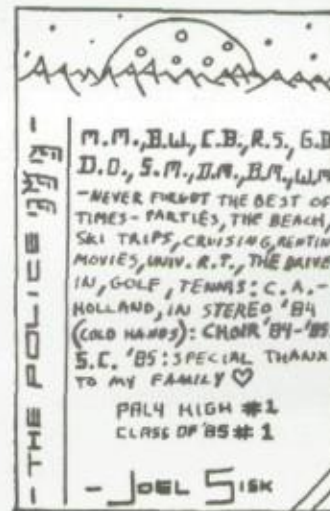 - THE POLICE
M.M., B.W., C.B., R.S., G.B
D.O., S.M., D.M., B.M., W.M
-NEVER FORGET THE BEST OF
TIMES- PARTIES, THE BEACH,
SKI TRIPS, CRUISING, RENTIN
MOVIES, UNIV. R.T., THE DRIVE
IN, GOLF, TENNIS: C.A.-
HOLLAND, IN STEREO '84
(COLD HANDS): CHOIR '84-'85
S.C. '85: SPECIAL THANX
TO MY FAMILY ♡
PALY HIGH #1
CLASS OF '85 #1
- JOEL SISK